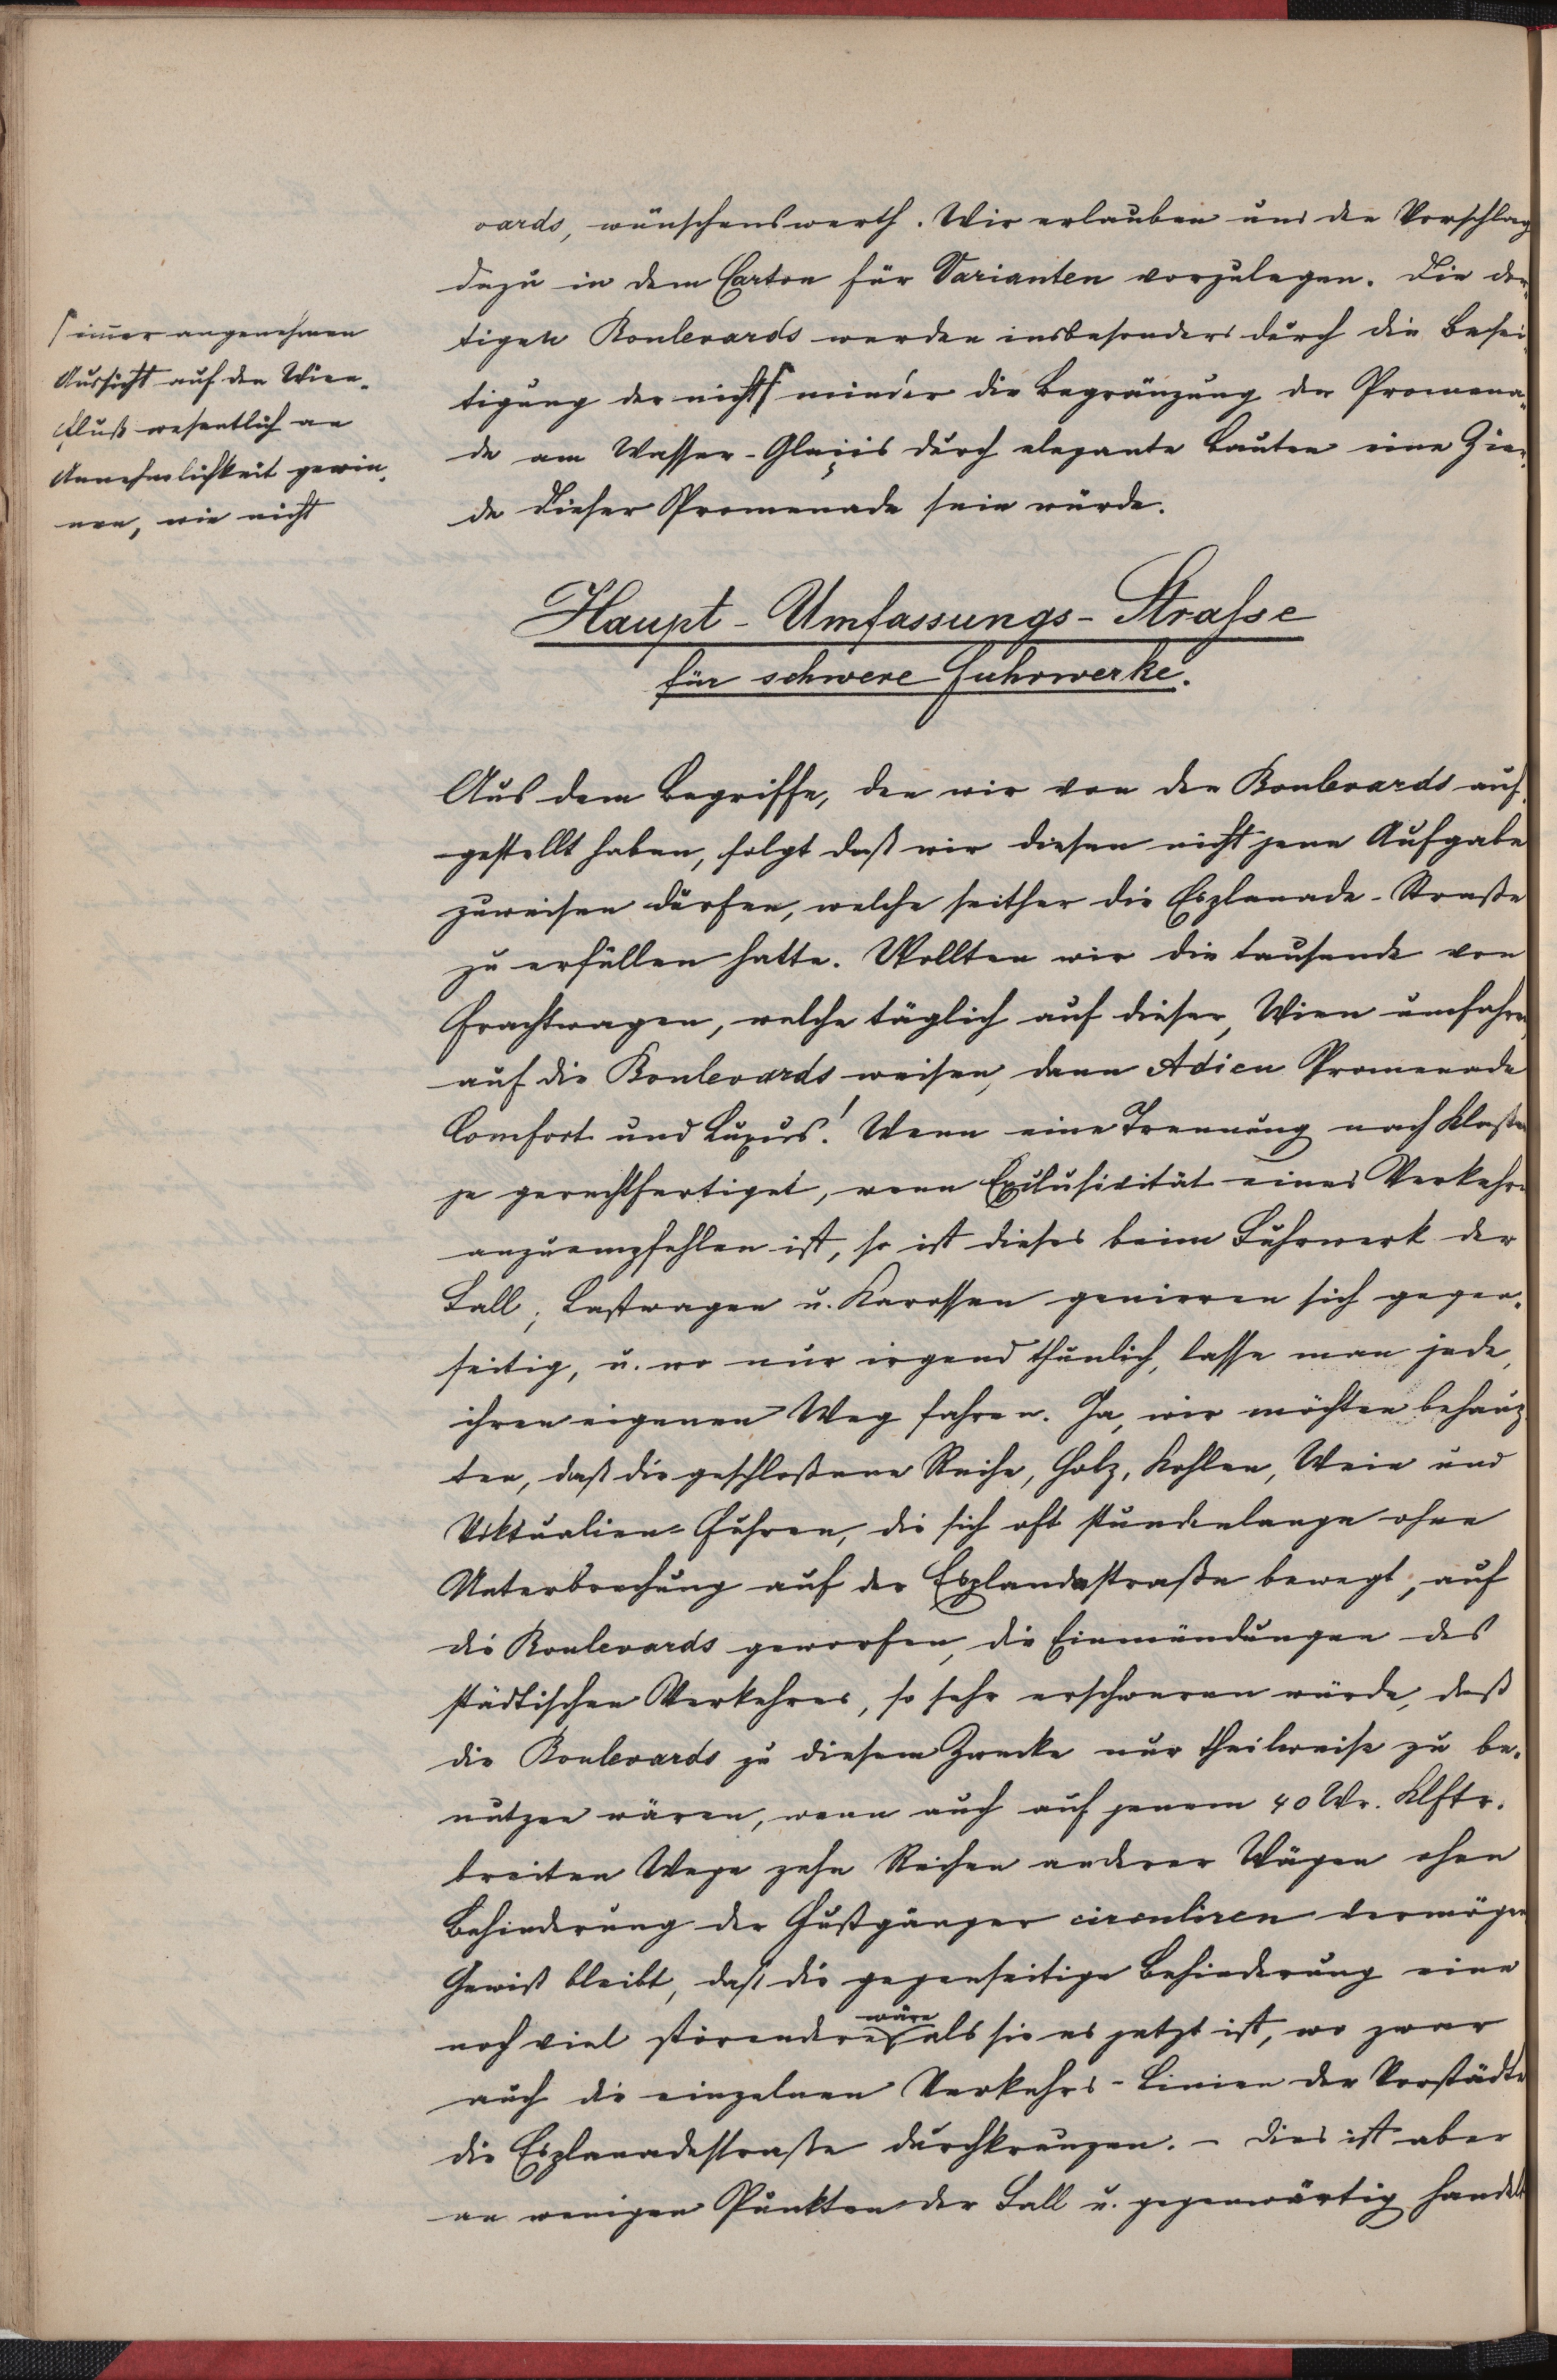 vards, wünschenswerth. Wir erlauben uns den Vorschlag
dazu in dem Carton für Varianten vorzulegen. Die dor-
tigen Boulevards werden insbesonders durch die Besei-
tigung der nicht⌠ minder die Begränzung der Promena-
de am Wasser-Glacis durch elegante Bauten eine Zier-
de dieser Promenade sein würde.
⌠immer angenehmen
Aussicht auf den Wien-
fluß wesentlich an
Annehmlichkeit gewin-
nen, wie nicht
Haupt-Umfassungs-Strasse
für schwere Fuhrwerke.
Aus dem Begriffe, den wir von den Boulevards auf-
gestellt haben, folgt daß wir diesen nicht jene Aufgabe
zuweisen dürfen, welche seither die Esplanade-Straße
zu erfüllen hatte. Wollten wir die tausende von
Frachtwagen, welche täglich auf dieser, Wien umfahren
auf die Boulevards weisen, dann Adieu Promenade
Comfort und Luxus! Wenn eine Trennung nach Klaßen
je gerechtfertiget, wenn Exclusivität eines Verkehrs
anzuempfehlen ist, so ist dieses beim Fuhrwerk der
Fall; Lastwagen u. Karossen genieren sich gegen-
seitig, u. wo nur irgend thunlich, lasse man jede,
ihren eigenen Weg fahren. Ja, wir möchten behaup-
ten, daß die geschloßene Reihe, Holz, Kohlen, Wein und
Viktualien-Fuhren, die sich oft stundenlange ohne
Unterbrechung auf der Esplandestraße bewegt, auf
die Boulevards geworfen, die Einmündungen des
städtischen Verkehres, so sehr erschweren würde, daß
die Boulevards zu diesem Zwecke nur theilweise zu be-
nutzen wären, wenn auch auf jenem 40 Wr. Klftr.
breiten Wege zehn Reihen anderer Wägen ohne
Behinderung der Fußgänger circuliren vermögen
Gewiß bleibt, daß die gegenseitige Behinderung eine
noch viel störendere wäre als sie es jetzt ist, wo zwar
auch die einzelnen Verkehrs-Linien der Vorstädte
die Esplanadestraße durchkreuzen. – Dies ist aber
an wenigen Punkten der Fall u. gegenwärtig handelt